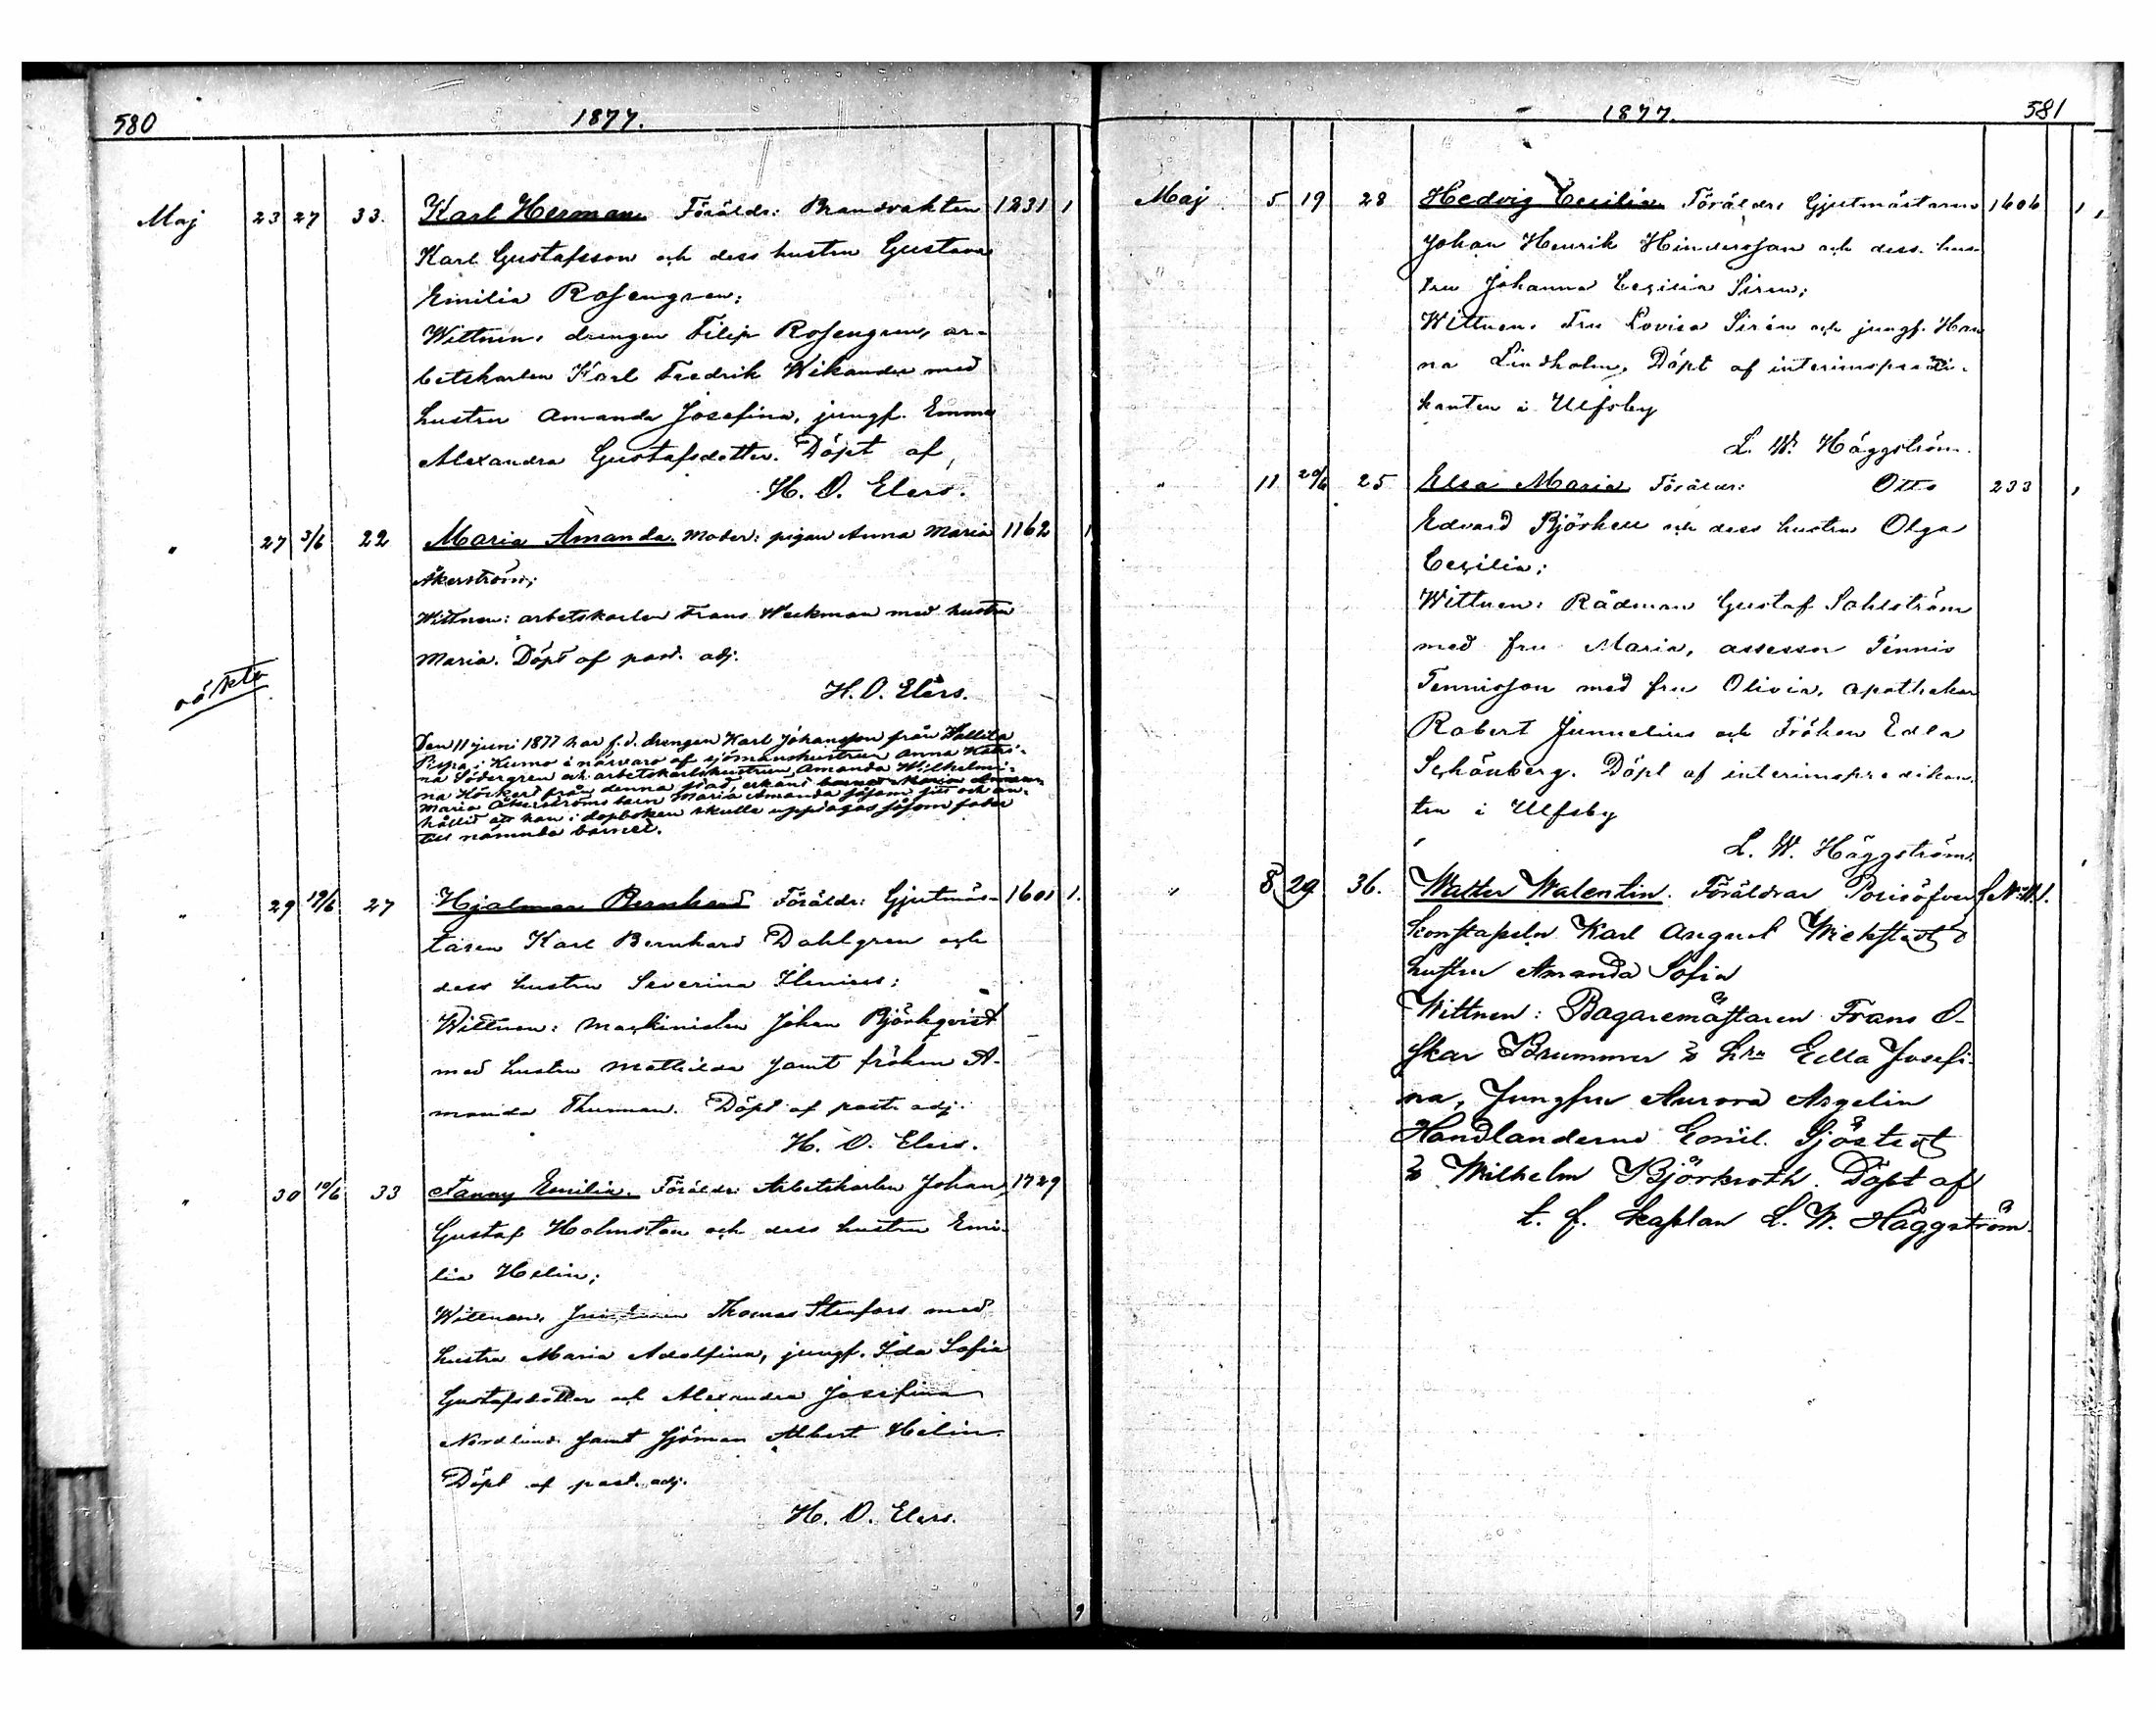 580 1877.
Maj 23 27 33. Karl Herman. Föräldr: Brandvakten 1231 1
Karl Gustafsson och dess hustru Gustava
Emilia Rosengren;
Wittnen: drengen Filip Rosengren, ar-
betskarlen Karl Fredrik Wikander med
hustru Amanda Josefina, jungf. Emma
Alexandra Gustafsdotter. Döpt af,
H. O. Elers.
" 27 3/6 22 Maria Amanda. Moder: pigan Anna Maria 1162 1
Åkerström;
Wittnen: arbetskarlen Frans Weckman med hustru
Maria. Döpt af past. adj.
H. O. Elers.
oäkta
Den 11 juni 1877 har f.d. drengen Karl Johansson från
i Kumo i närvaro af sjömanshustrun Anna Katri-
na Södergren och arbetskarlshustrun Amanda Wilhelmi-
na från denna stad, erkänt
Maria Åkerströms barn Maria Amanda såsom sitt och an-
hållit att han i dopboken skulle upptagas såsom fader
till nämnda barnet.
" 29 19/6 27 Hjalmar Bernhard Föräldr: Gjutmäs- 1601 1.
taren Karl Bernhard Dahlgren och
dess hustru Severina Ilenius;
Wittnen: maskinisten Johan Björkqvist
med hustru Mathilda samt fröken A-
manda Thurman. Döpt af past. adj.
H. O. Elers.
" 30 19/6 33 Fanny Emilia. Föräldr: Arbetskarlen Johan 1729
Gustaf Holmsten och dess hustru Emi-
lia Helin;
Wittnen: Thomas Stenfors med
hustru Maria Adolfina, jungf. Ida Sofia
Gustafsdotter och Alexandra Josefina
Nordlund samt sjöman Albert Helin.
Döpt af past. adj.
H. O. Elers.
1877. 581
Maj 5 19 28 Hedvig Cecilia. Föräldr: Gjutmästaren 1606
Johan Henrik Hindersson och dess hus-
tru Johanna Cecilia Siren;
Wittnen: Fru Lovisa Sirén och jungf. Han
na Lindholm. Döpt af interimspredi-
kanten i Ulfsby
L. W. Häggström.
" 11 20/6 25 Elsa Maria Föräldr: Otto 233
Edvard Björkell och dess hustru Olga
Cecilia;
Wittnen: Rådman Gustaf Sohlström
med fru Maria, assessor Tennis
Tennisson med fru Olivia, apothekar
Robert Junnelius och Fröken Edla
Schönberg. Döpt af interimspredikan-
ten i Ulfsby
L. W. Häggström.
" 8 29 36. Walter Walentin. Föräldrar
Konstapeln Karl August Wickstedt &
hustru Amanda Sofia
Wittnen: Bagaremästaren Frans O-
skar Brummer & hru Edla Josefi-
na, Jungfru Aurora Argelin
Handlanderne Emil Sjöstedt
& Wilhelm Björkroth. Döpt af
t. f. kaplan L. W. Häggström.